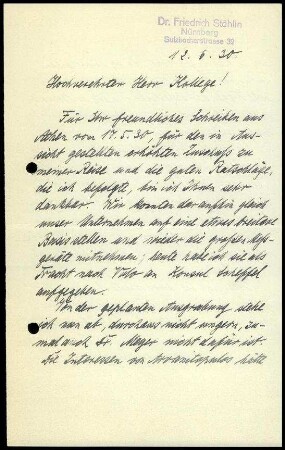 Dr. Friedrich Stählin
Nürnberg
Sulzbacherstrasse 39
12. 6. 30
Hochverehrter Herr Kollege!
Für Ihr freundliches Schreiben aus
Athen vom 17.5.30, für den in Aus-
sicht gestellten erhöhten Zuschuss zu
meiner Reise und die guten Ratschläge,
die ich befolgte, bin ich Ihnen sehr
dankbar. Wir konnten daraufhin gleich
unser Unternehmen auf eine etwas breitere
Basis stellen und wieder die großen Mess-
geräte mitnehmen; heute habe ich sie als
Fracht nach Volo an Konsul Scheffel
aufgegeben.
Von der geplanten Ausgrabung stehe
ich nun ab, durchaus nicht ungern, zu-
mal auch Dr. Meyer nicht dafür ist.
Die Interessen von Arvanitopulos hätte